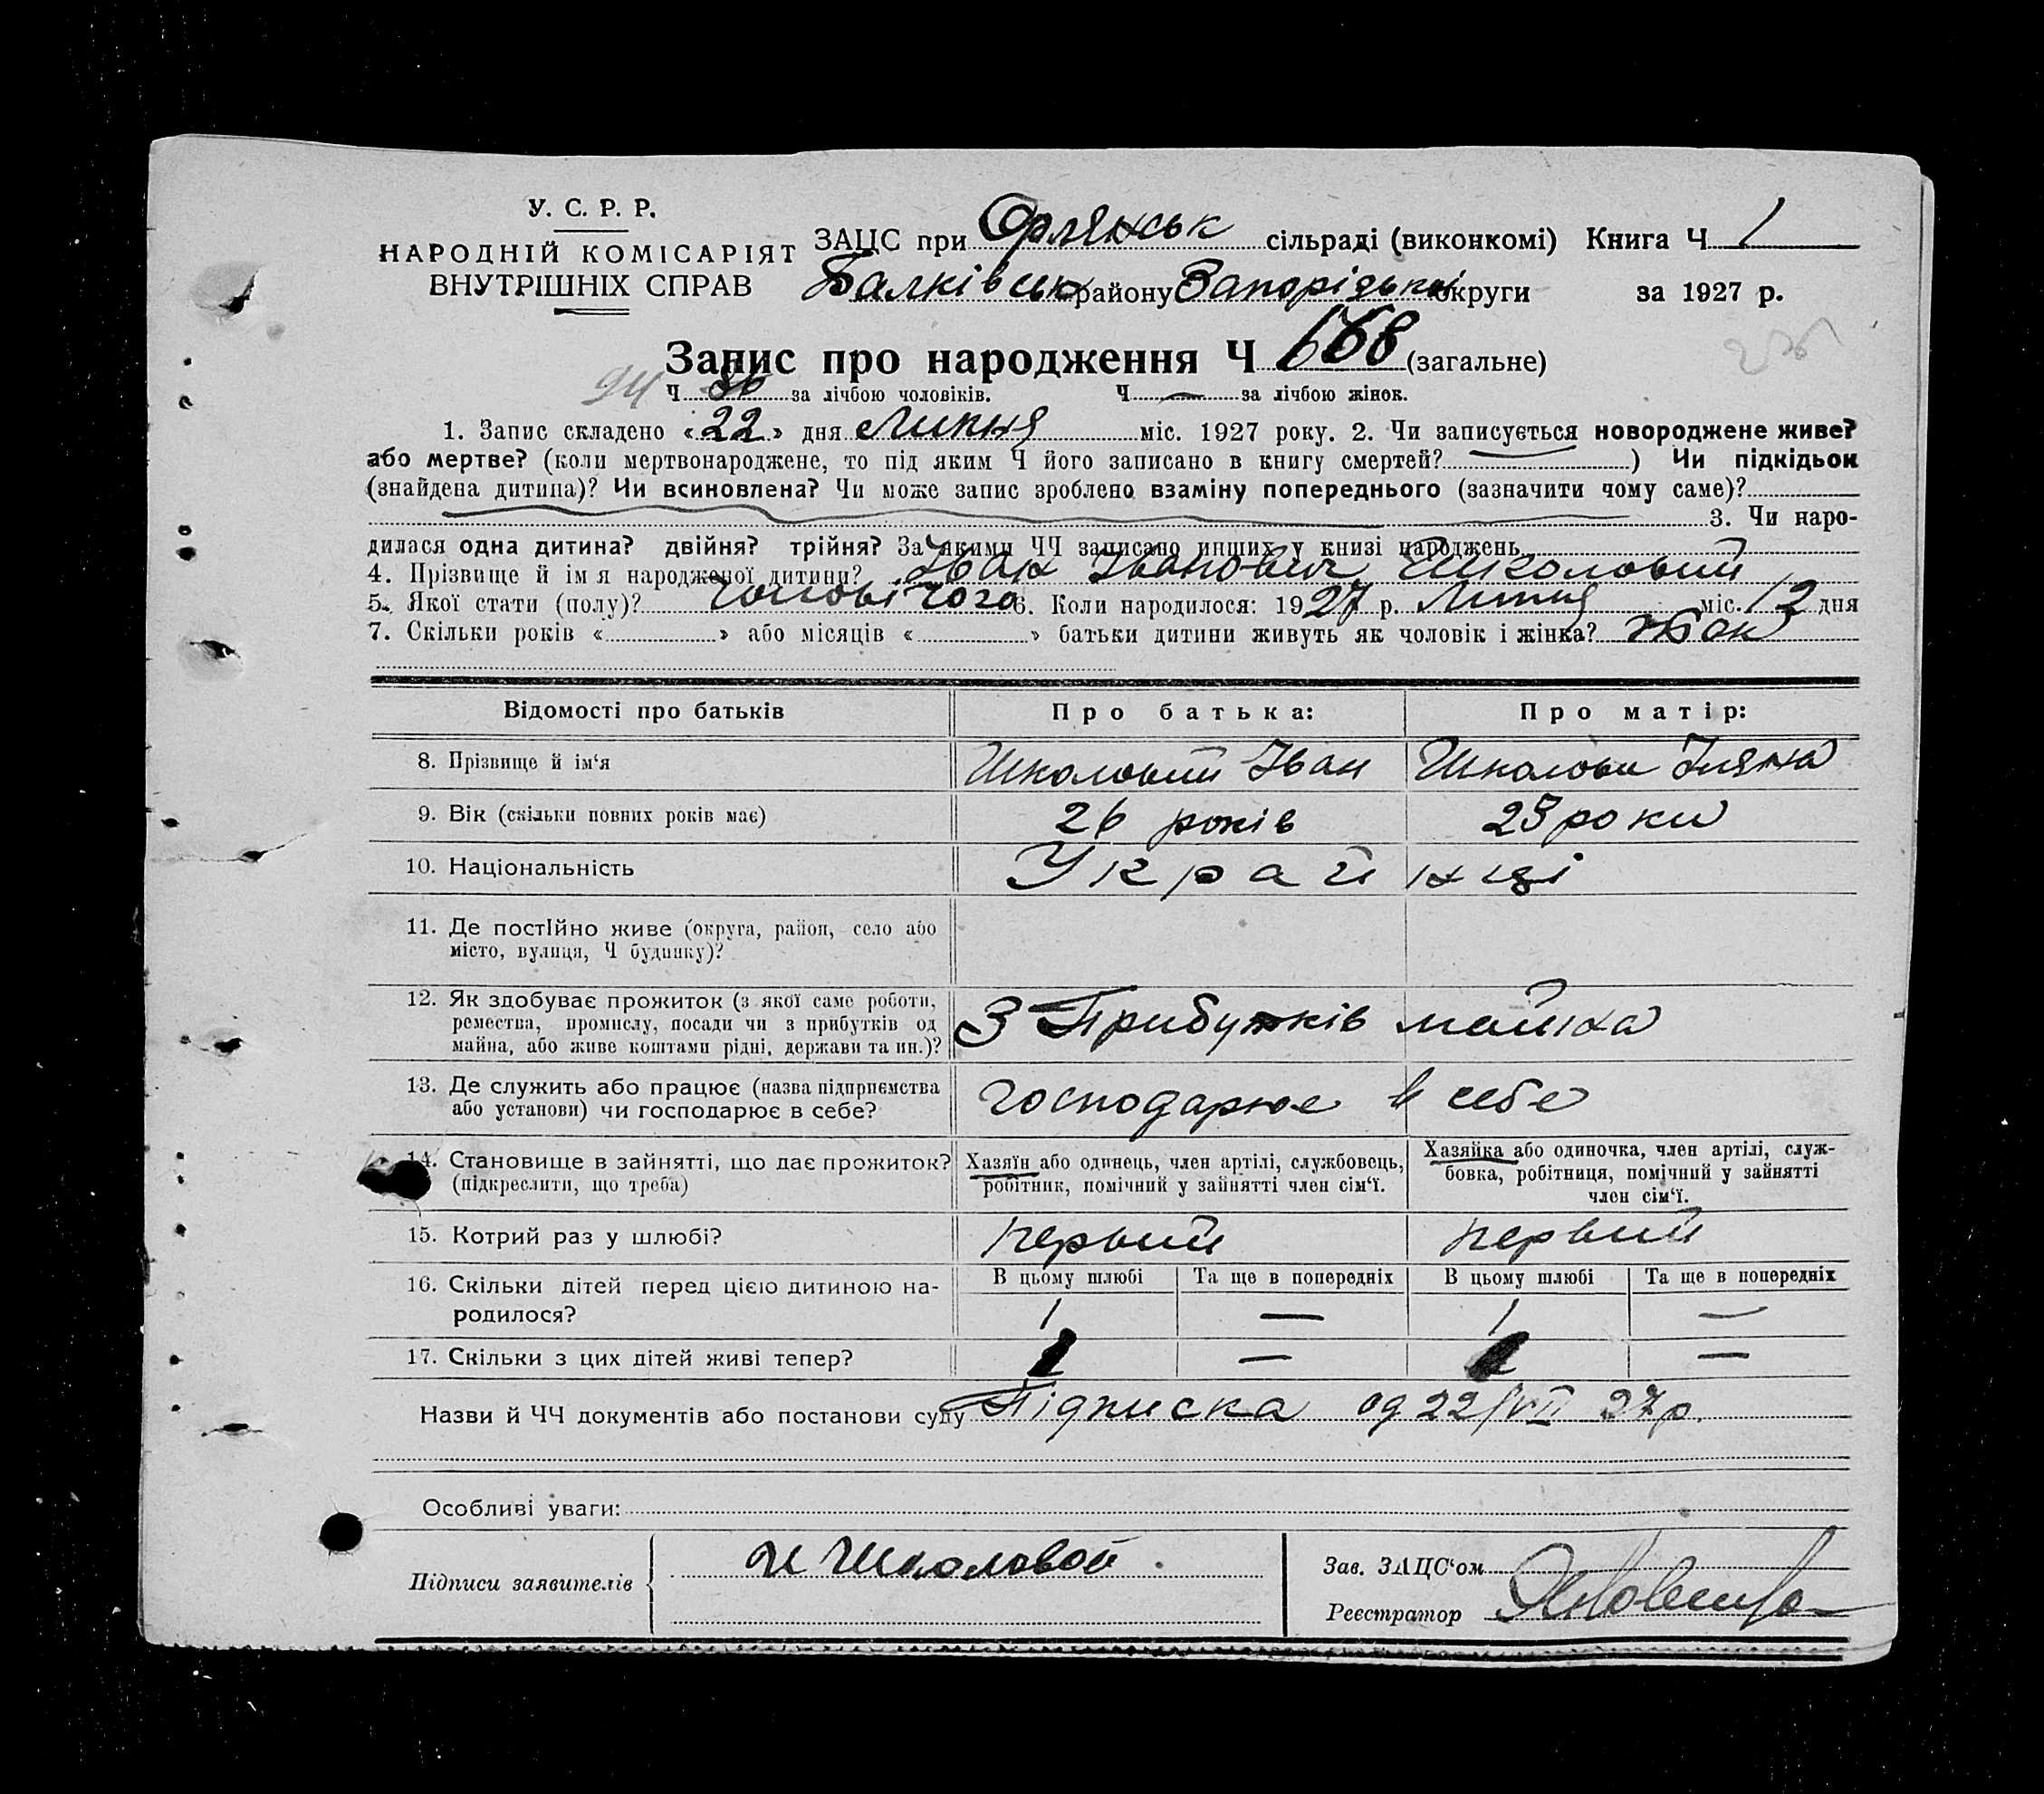 У. С. Р. Р.
НАРОДНІЙ КОМІСАРІЯТ
ВНУТРІШНІХ СПРАВ
ЗАЦС при Орлянськ сільраді (виконкомі) Книга Ч 1
Балківськ району Запорізької округи за 1927 р.
Запис про народження Ч 168 (загальне)
94 Ч 86 за лічбою чоловіків. Ч — за лічбою жінок.
1. Запис складено «22» дня Липня міс. 1927 року. 2. Чи записується новороджене живе?
або мертве? (коли мертвонароджене, то під яким Ч його записано в книгу смертей? ) Чи підкідьок
(знайдена дитина)? Чи всиновлена? Чи може запис зроблено взаміну попереднього (зазначити чому саме)?
3. Чи наро-
дилася одна дитина? двійня? трійня? За якими ЧЧ записано инших у книзі народжень
4. Прізвище й ім'я народженої дитини? Іван Іванович Школовий
5. Якої стати (полу)? чоловічого 6. Коли народилося: 1927 р. Липня міс. 12 дня
7. Скільки років « » або місяців « » батьки дитини живуть як чоловік і жінка? так
Відомості про батьків Про батька: Про матір:
8. Прізвище й ім'я Школовий Іван Школова
9. Вік (скільки повних років має) 26 років 23 роки
10. Національність Українці
11. Де постійно живе (округа, район, село або
місто, вулиця, Ч будинку)?
12. Як здобуває прожиток (з якої саме роботи,
ремества, промислу, посади чи з прибутків од
майна, або живе коштами рідні, держави та ин.)?
З Прибутків майна
13. Де служить або працює (назва підприємства
або установи) чи господарює в себе?
господарює в себе
14. Становище в зайнятті, що дає прожиток?
(підкреслити, що треба)
Хазяїн або одинець, член артілі, службовець,
робітник, помічний у зайнятті член сім'ї.
Хазяйка або одиночка, член артілі, служ-
бовка, робітниця, помічний у зайнятті
член сім'ї.
15. Котрий раз у шлюбі? первий первий
16. Скільки дітей перед цією дитиною на-
родилося?
В цьому шлюбі Та ще в попередніх В цьому шлюбі Та ще в попередніх
1 — 1 —
17. Скільки з цих дітей живі тепер? 1 — 1 —
Назви й ЧЧ документів або постанови суду Підписка од 22/VII 27р.
Особливі уваги:
Підписи заявителів И Школовой
Зав. ЗАЦС'ом
Реєстратор